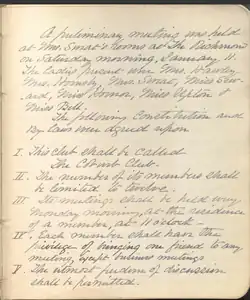 A preliminary meeting was held
at Mrs. Smoat's Rooms at The Richmond
on Saturday morning, January 11.
The Ladies present were Mrs.
Mrs. Hornsby, Mrs. Smoat, Miss
Miss Connor, Miss Upton &
Miss Bell.
The following Constitution and
By Laws were agreed upon
I. This club shall be called
The Club.
II. The number of its members shall
be limited to twelve.
III. Its meetings shall be held every
Monday morning, at the residence
of a member, at 11 o'clock.
IV. Each member shall have the
privilege of bringing one friend to any
meeting, except business meetings.
V. The utmost freedom of discussion
shall be permitted.